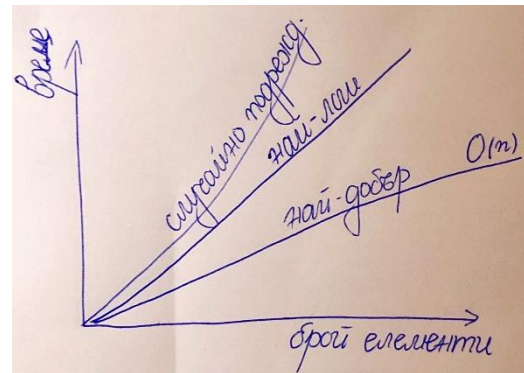 време
случайно подрежд.
най-лош
най-добър
O(n)
брой елементи